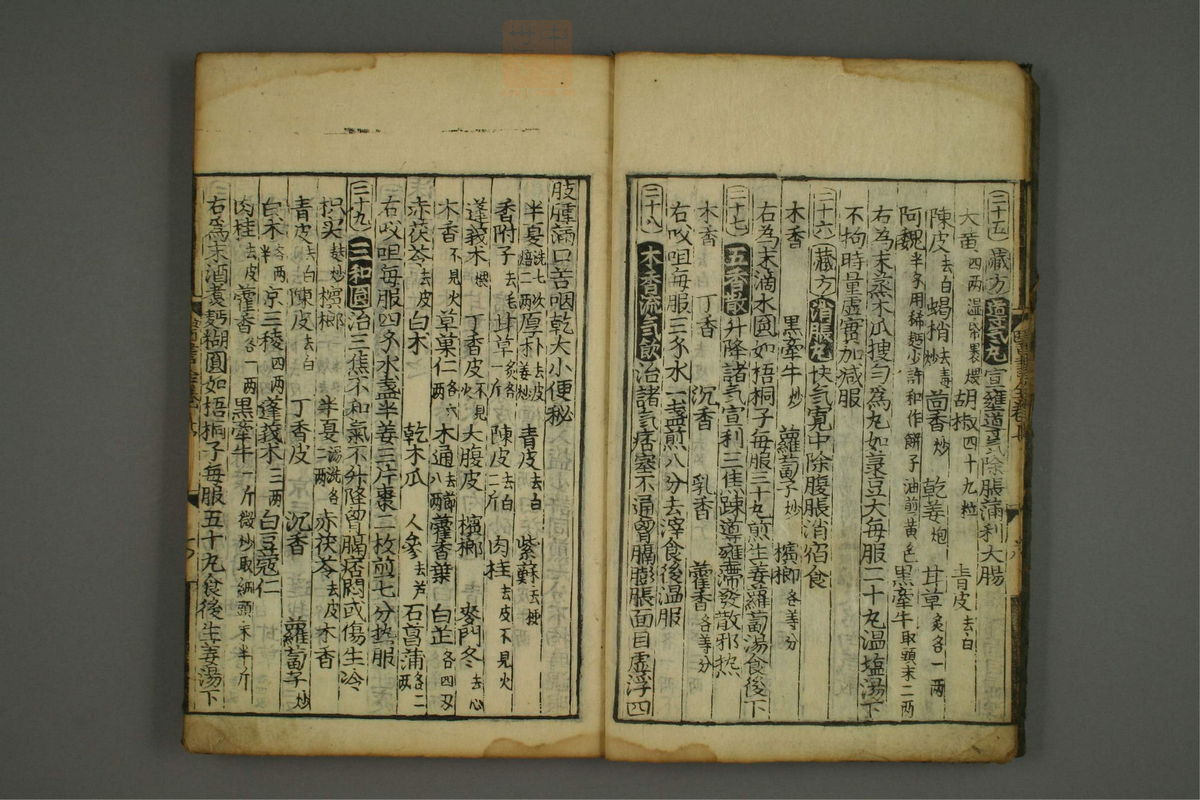 二十五 藏方 導氣丸 宣壅導氣除脹滿利大腸
大黃四兩湿帋裹煨 胡椒四十九粒 青皮去白
陳皮去白 蝎梢去毒炒 茴香炒 乾姜炮 甘草炙各一兩
阿魏半分用稀麪少許和作餅子油煎黃色 黑牽牛取頭末二兩
右為末蒸木瓜搜勻為丸如菉豆大每服二十丸温塩湯下
不拘時量虛實加減服
二十六 藏方 消脹丸 快氣寬中除腹脹消宿食
木香 黑牽牛炒 蘿蔔子炒 檳榔各等分
右為末滴水圓如梧桐子每服三十丸煎生姜蘿蔔湯食後下
二十七 五香散 升降諸氣宣利三焦踈導壅滯發散邪熱
木香 丁香 沉香 乳香 藿香各等分
右㕮咀每服三錢水一盞煎八分去滓食後温服
二十八 木香流氣飲 治諸氣痞塞不通胷膈膨脹面目虛浮四
肢腫滿口苦咽乾大小便秘
半夏湯洗七次焙二兩 厚朴去皮姜炒 青皮去白 紫蘇去梗
香附子去毛 甘草炙各一斤 陳皮去白二斤 肉桂去皮不見火
蓬莪朮煨 丁香皮不見火 大腹皮 檳榔 麥門冬去心
木香不見火 草菓仁各六兩 木通去節八兩 藿香葉 白芷各四兩
赤茯苓去皮 白朮 乾木瓜 人參去芦 石菖蒲各二兩
右㕮咀每服四錢水盞半姜三片棗二枚煎七分熱服
二十九 三和圓 治三焦不和氣不升降胷膈痞悶或傷生冷
枳殼麩炒 檳榔 半夏湯洗各二兩 赤茯苓去皮 木香
青皮去白 陳皮去白 丁香皮 沉香 蘿蔔子炒
白朮各兩半 京三稜四兩 蓬莪朮三兩 白豆蔻仁
肉桂去皮 藿香各一兩 黑牽牛一斤微炒取細頭末半斤
右為末酒煮麪糊圓如梧桐子每服五十丸食後生姜湯下